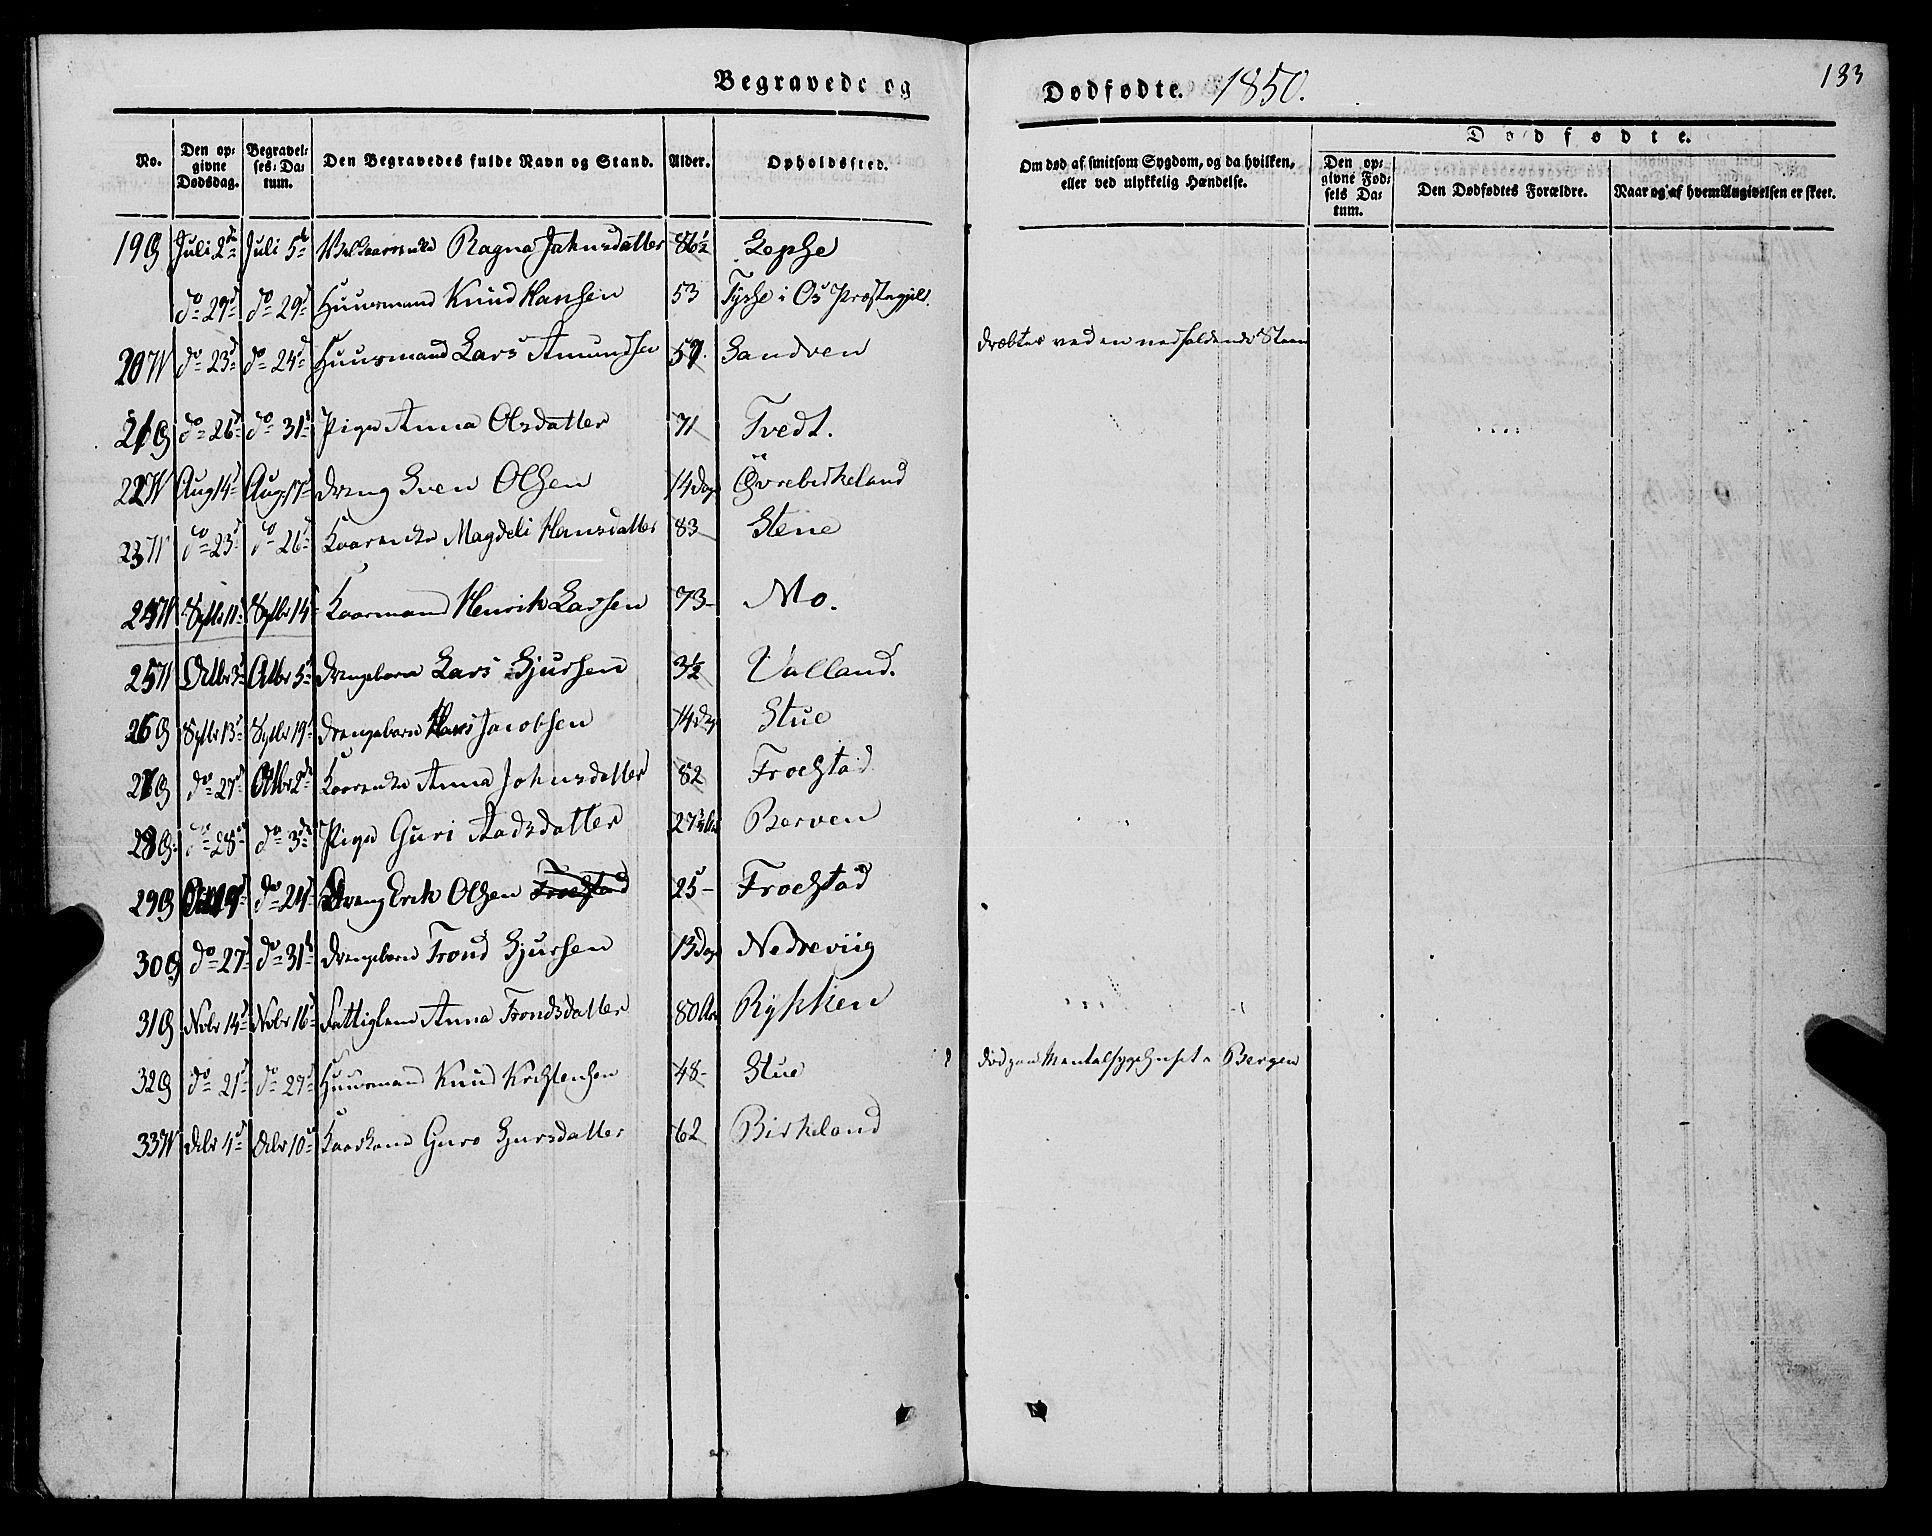 Begravede og
Dødfødte. 1850.
133
No.
Den op-
givne
Dødsdag.
Begravel-
ses-Da-
tum.
Den Begravedes fulde Navn og Stand.
Alder.
Opholdssted.
Om død af smitsom Sygdom, og da hvilken,
eller ved ulykkelig Hændelse.
Dødfødte.
Den op-
givne Fød-
sels Da-
tum.
Den Dødfødtes Forældre.
Naar og af hvem Angivelsen er skeet.
19 G Juli 2d Juli 5d Ragna Johnsdatter 86½ Lepse
do 29d do 29d Huusmand Knud Hansen 53 Tysse i Os Præstegjeld.
20 W do 23d do 24d Huusmand Lars Amundsen 57. Sandven dræbtes ved en nedfaldende Steen
21 G do 26d do 31d Pige Anna Olsdatter 71 Tvedt.
22 W Aug 14d Aug 17d Dreng Sven Olsen 14 Dage Øvrebirkeland
23 W do 23d do 26d Kaarenke Magdeli Hansdatter 83 Stene
24 W Sptbr 11d Sptbr 14d Kaarmand Henrik Larsen 73 Mo.
25 W Octbr 3d Octbr 5d Drengebarn Lars Sjursen 3½ Valland.
26 G Sptbr 13d Sptbr 19d Drengebarn Hans Jacobsen 14 Dage Stue
27 G do 27d Octbr 2d Kaarenke Anna Johnsdatter 82 Froestad
28 G do 28d do 3d Pige Guri Aadsdatter 27 Berven
29 G 19d do 24d Dreng Erik Olsen Froestad 25 Froestad
30 G do 27d do 31d Drengebarn Trond Sjursen 13 Dage Nedreviig
31 G Nvbr 14d Nvbr 16d Fattiglem Anna Trondsdatter 80 Aar Rykken
32 G do 21d do 27d Huusmand Knud Kristensen 48 Stue død paa Mentalsygehuset i Bergen
33 W Dcbr 4d Dcbr 10d Kaarkone Guro Sjursdatter 62 Birkeland